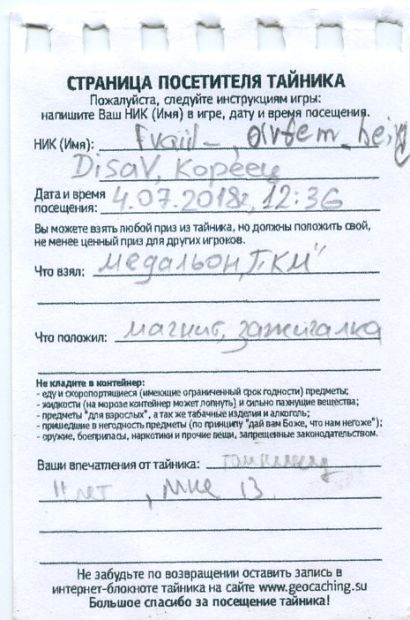 СТРАНИЦА ПОСЕТИТЕЛЯ ТАЙНИКА
Пожалуйста, следуйте инструкциям игры:
напишите Ваш НИК (Имя) в игре, дату и время посещения.
НИК (Имя):
DisaV, Кореец
Дата и время
посещения: 4.07.2018г, 12:36
Вы можете взять любой приз из тайника, но должны положить свой,
не менее ценный приз для других игроков.
Что взял: медальон
Что положил: магнит, зажигалка
Не кладите в контейнер:
- еду и скоропортящиеся (имеющие ограниченный срок годности) предметы;
- жидкости (на морозе контейнер может лопнуть) и сильно пахнущие вещества;
- предметы "для взрослых", а так же табачные изделия и алкоголь;
- пришедшие в негодность предметы (по принципу "дай вам Боже, что нам негоже");
- оружие, боеприпасы, наркотики и прочие вещи, запрещенные законодательством.
Ваши впечатления от тайника:
11 лет, мне 13
Не забудьте по возвращении оставить запись в
интернет-блокноте тайника на сайте www.geocaching.su
Большое спасибо за посещение тайника!